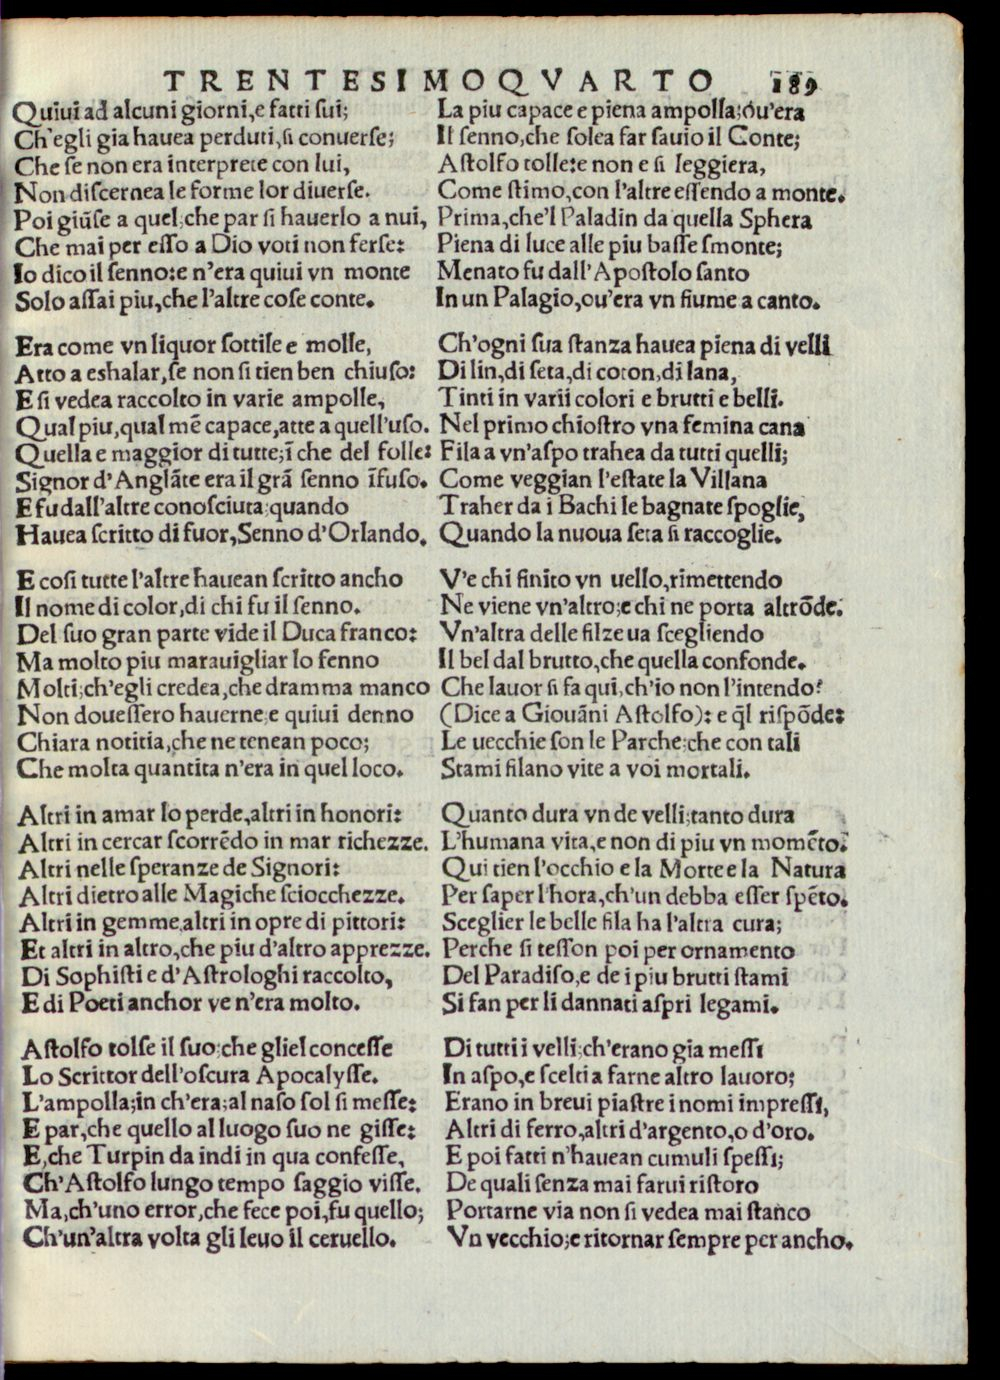 TRENTESIMOQVARTO 189
Quiui ad alcuni giorni, e fatti sui;
Ch'egli gia hauea perduti, si conuerse;
Che se non era interprete con lui,
Non discernea le forme lor diuerse.
Poi giũse a quel; che par si hauerlo a nui,
Che mai per esso a Dio voti non ferse:
Io dico il senno: e n'era quiui vn monte
Solo assai piu, che l'altre cose conte.
Era come vn liquor sottile e molle,
Atto a eshalar, se non si tien ben chiuso:
E si vedea raccolto in varie ampolle,
Qual piu, qual mẽ capace, atte a quell'uso.
Quella e maggior di tutte; ĩ che del folle:
Signor d'Anglãte era il grã senno ĩfuso.
E fu dall'altre conosciuta; quando
Hauea scritto di fuor, Senno d'Orlando.
E cosi tutte l'altre hauean scritto ancho
Il nome di color, di chi fu il senno.
Del suo gran parte vide il Duca franco:
Ma molto piu marauigliar lo fenno
Molti; ch'egli credea, che dramma manco
Non douessero hauerne; e quiui denno
Chiara notitia, che ne tenean poco;
Che molta quantita n'era in quel loco.
Altri in amar lo perde, altri in honori:
Altri in cercar scorrẽdo in mar richezze.
Altri nelle speranze de Signori:
Altri dietro alle Magiche sciocchezze.
Altri in gemme, altri in opre di pittori:
Et altri in altro, che piu d'altro apprezze.
Di Sophisti e d'Astrologhi raccolto,
E di Poeti anchor ve n'era molto.
Astolfo tolse il suo; che gliel concesse
Lo Scrittor dell'oscura Apocalysse.
L'ampolla; in ch'era; al naso sol si messe:
E par, che quello al luogo suo ne gisse:
E, che Turpin da indi in qua confesse,
Ch'Astolfo lungo tempo saggio visse.
Ma, ch'uno error, che fece poi, fu quello;
Ch'un'altra volta gli leuo il ceruello.
La piu capace e piena ampolla; óu'era
Il senno, che solea far sauio il Conte;
Astolfo tolle: e non e si leggiera,
Come stimo, con l'altre essendo a monte.
Prima, che'l Paladin da quella Sphera
Piena di luce alle piu basse smonte;
Menato fu dall'Apostolo santo
In un Palagio, ou'era vn fiume a canto.
Ch'ogni sua stanza hauea piena di velli
Di lin, di seta, di coton, di lana,
Tinti in varii colori e brutti e belli.
Nel primo chiostro vna femina cana
Fila a vn'aspo trahea da tutti quelli;
Come veggian l'estate la Villana
Traher da i Bachi le bagnate spoglie,
Quando la nuoua seta si raccoglie.
V'e chi finito vn uello, rimettendo
Ne viene vn'altro; e chi ne porta altrõde.
Vn'altra delle filze ua scegliendo
Il bel dal brutto, che quella confonde.
Che lauor si fa qui, ch'io non l'intendo?
(Dice a Giouãni Astolfo): e q̃l rispõde:
Le uecchie son le Parche; che con tali
Stami filano vite a voi mortali.
Quanto dura vn de velli; tanto dura
L'humana vita, e non di piu vn momẽto.
Qui tien l'occhio e la Morte e la Natura
Per saper l'hora, ch'un debba esser spẽto.
Sceglier le belle fila ha l'altra cura;
Perche si tesson poi per ornamento
Del Paradiso, e de i piu brutti stami
Si fan per li dannati aspri legami.
Di tutti i velli; ch'erano gia messi
In aspo, e scelti a farne altro lauoro;
Erano in breui piastre i nomi impressi,
Altri di ferro, altri d'argento, o d'oro.
E poi fatti n'hauean cumuli spessi;
De quali senza mai farui ristoro
Portarne via non si vedea mai stanco
Vn vecchio; e ritornar sempre per ancho.